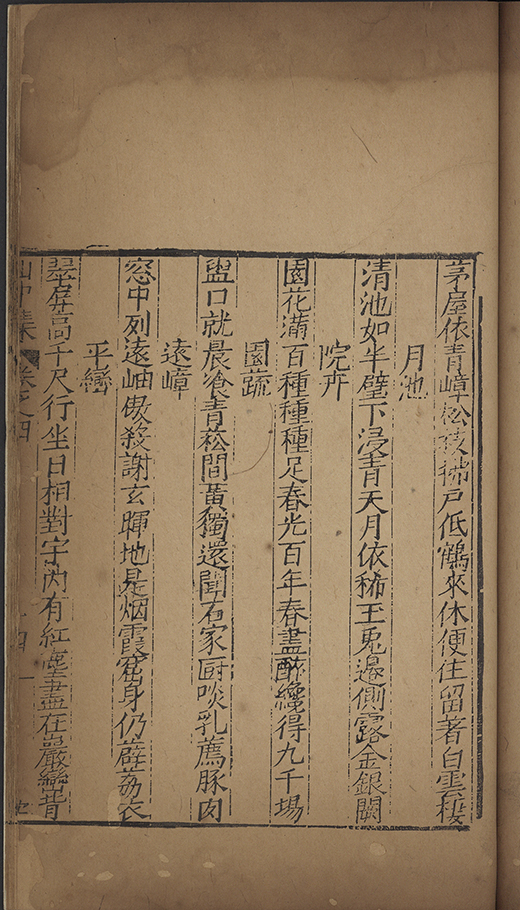 茅屋依青嶂松枝拂戶低鶴來休便住留著白雲棲
月池
清池如半璧下浸青天月依稀玉兔邊側露金銀闕
院卉
園花滿百種種種足春光百年春盡醉纔得九千場
園蔬
盥口就晨飡青菘間黃獨還聞石家厨啖乳薦豚肉
遠嶂
窓中列遠岫傲殺謝玄暉地是烟霞窟身仍薜荔衣
平巒
翠屏高千尺行坐日相對宇內有紅塵盡在巖巒背
山中集 卷之四